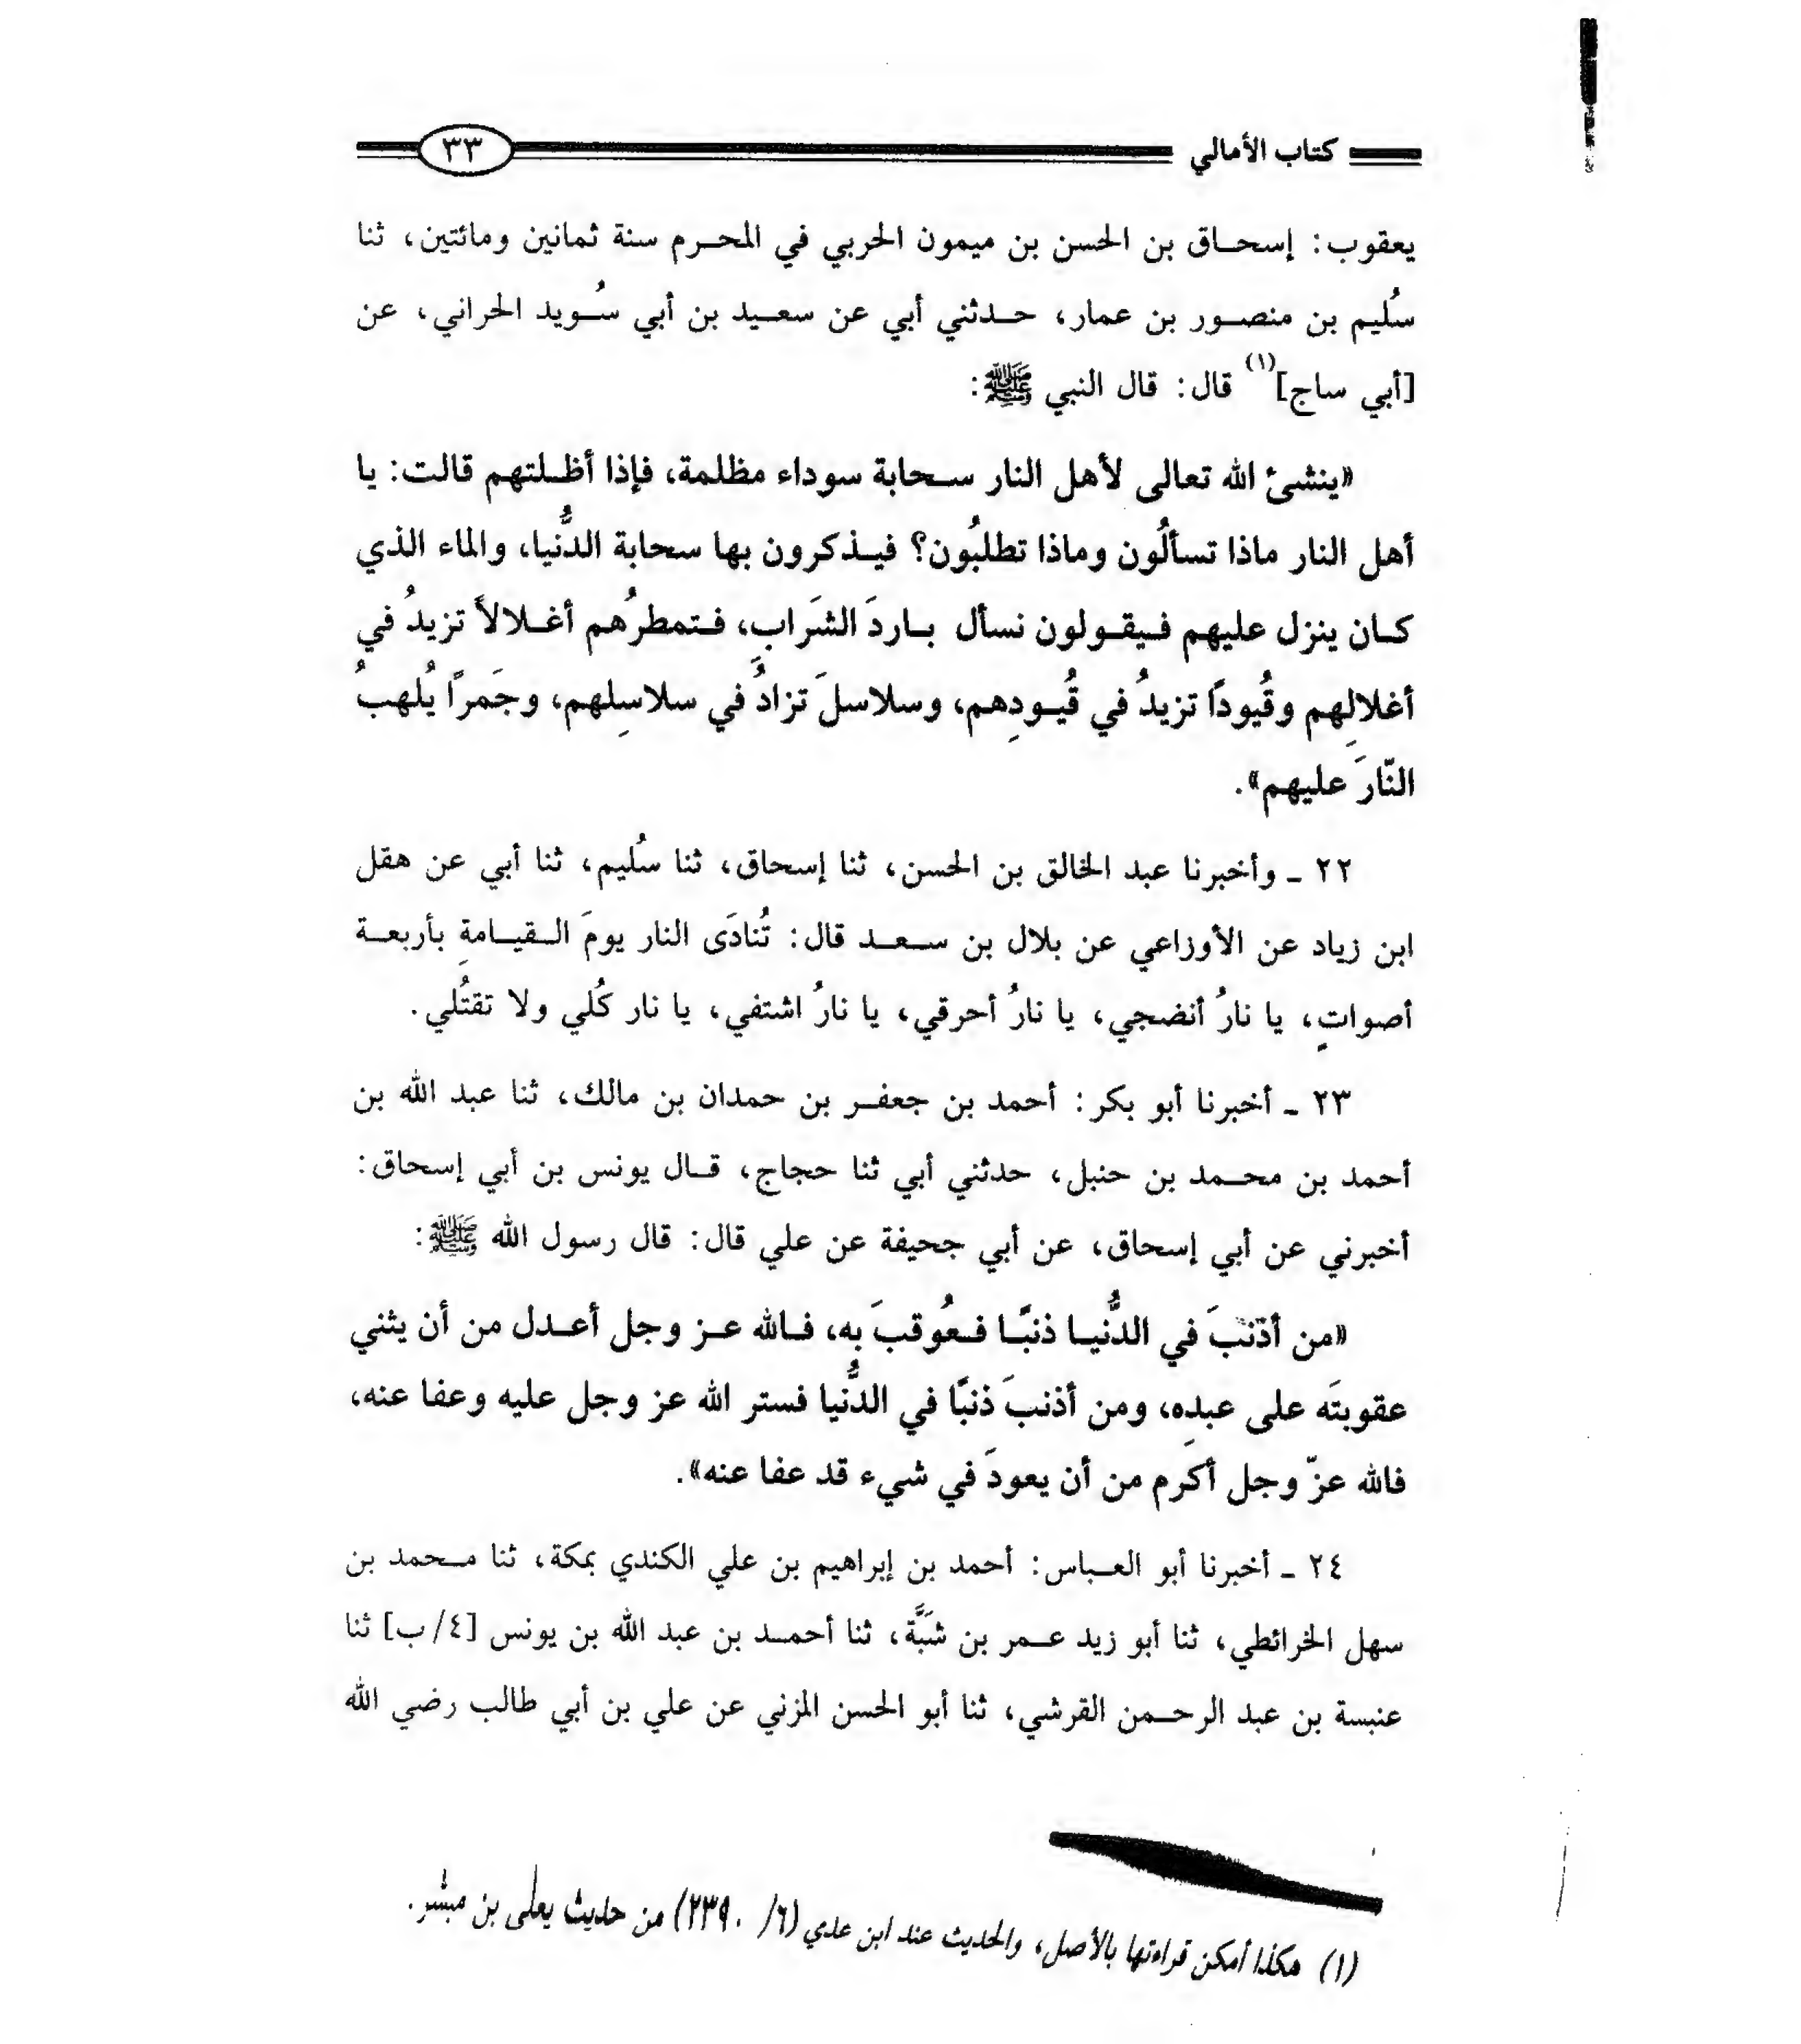 كتاب الأمالي ٣٣
يعقوب: إسحاق بن الحسن بن ميمون الحربي في المحرم سنة ثمانين ومائتين، ثنا
سُليم بن منصور بن عمار، حدثني أبي عن سعيد بن أبي سُويد الحراني، عن
[أبي ساج](١) قال: قال النبي ﷺ:
«ينشئ الله تعالى لأهل النار سحابة سوداء مظلمة، فإذا أظلتهم قالت: يا
أهل النار ماذا تسألُون وماذا تطلبُون؟ فيذكرون بها سحابة الدُّنيا، والماء الذي
كان ينزل عليهم فيقولون نسأل باردَ الشَرابِ، فتمطرُهم أغلالاً تزيدُ في
أغلالِهم وقُيوداً تزيدُ في قُيودِهم، وسلاسلَ تزادُ في سلاسِلهم، وجَمراً يُلهبُ
النّارَ عليهم».
٢٢ - وأخبرنا عبد الخالق بن الحسن، ثنا إسحاق، ثنا سُليم، ثنا أبي عن هقل
ابن زياد عن الأوزاعي عن بلال بن سعد قال: تُنادَى النار يومَ القيامةِ بأربعة
أصواتٍ، يا نارُ أنضجي، يا نارُ أحرقي، يا نارُ اشتفي، يا نار كُلي ولا تقتُلي.
٢٣ - أخبرنا أبو بكر: أحمد بن جعفر بن حمدان بن مالك، ثنا عبد الله بن
أحمد بن محمد بن حنبل، حدثني أبي ثنا حجاج، قال يونس بن أبي إسحاق:
أخبرني عن أبي إسحاق، عن أبي جحيفة عن علي قال: قال رسول الله ﷺ:
«من أذنبَ في الدُّنيا ذنبًا فعُوقبَ به، فالله عز وجل أعدل من أن يثني
عقوبتَه على عبدِه، ومن أذنبَ ذنبًا في الدُّنيا فستر الله عز وجل عليه وعفا عنه،
فالله عزّ وجل أكرَم من أن يعودَ في شيء قد عفا عنه».
٢٤ - أخبرنا أبو العباس: أحمد بن إبراهيم بن علي الكندي بمكة، ثنا محمد بن
سهل الخرائطي، ثنا أبو زيد عمر بن شَبَّة، ثنا أحمد بن عبد الله بن يونس [٤/ب] ثنا
عنبسة بن عبد الرحمن القرشي، ثنا أبو الحسن المزني عن علي بن أبي طالب رضي الله
(١) هكذا أمكن قراءتها بالأصل، والحديث عند ابن عدي (٦/ ٢٣٩٠) من حديث يعلى بن مبشر.